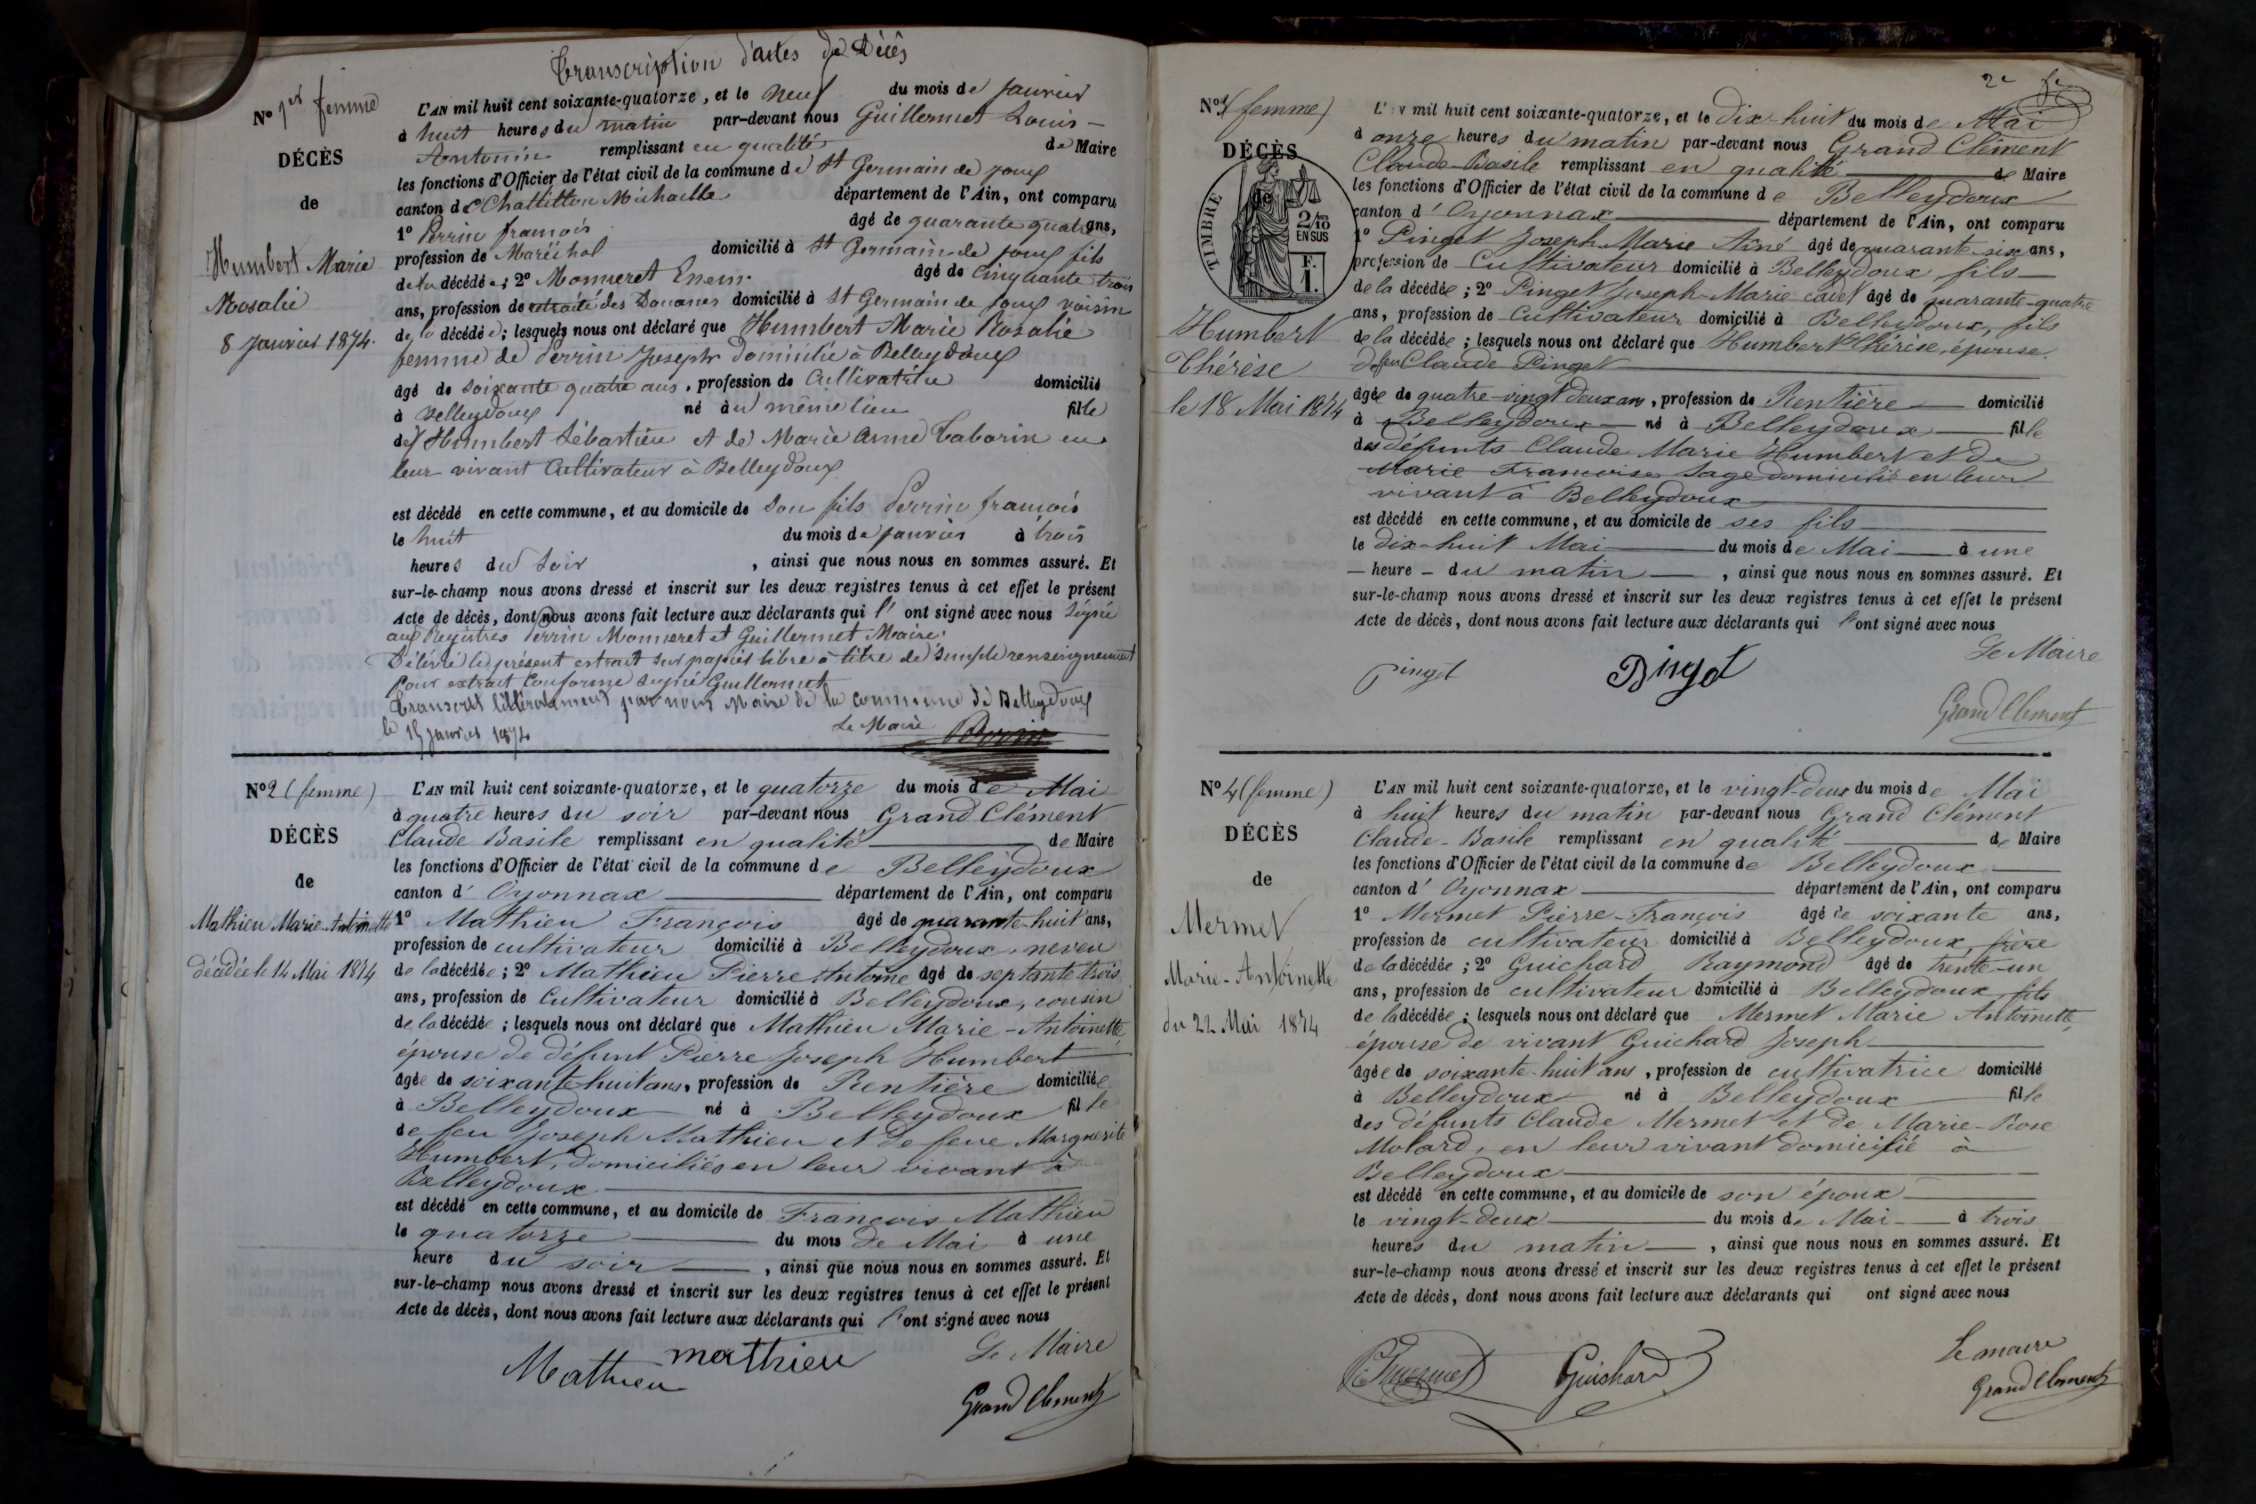 Transcription d'actes de Décès
No 1er femme
DÉCÈS
de
Humbert Marie
Rosalie
8 Janvier 1874.
L'AN mil huit cent soixante-quatorze, et le neuf du mois de Janvier
à huit heures du matin par-devant nous Guillermet Louis-
Antonin remplissant en qualité de Maire
les fonctions d'Officier de l'état civil de la commune de St Germain de Joux
canton de Chatillon Michaille département de l'Ain, ont comparu
1o Perrin françois âgé de quarante quatre ans,
profession de Maréchal domicilié à St Germain de Joux fils
de la décédée; 2o Monneret âgé de cinquante trois
ans, profession de retraité des Douanes domicilié à St Germain de Joux voisin
de la décédée; lesquels nous ont déclaré que Humbert Marie Rosalie
femme de Perrin Joseph domiciliée à Belleydoux
âgé de soixante quatre ans, profession de Cultivatrice domicilié
à Belleydoux né au même lieu fille
de Humbert Sébastien et de Marie Anne Taborin en
leur vivant Cultivateur à Belleydoux
est décédé en cette commune, et au domicile de Son fils Perrin françois
le huit du mois de Janvier à trois
heures du Soir, ainsi que nous nous en sommes assuré. Et
sur-le-champ nous avons dressé et inscrit sur les deux registres tenus à cet effet le présent
Acte de décès, dont nous avons fait lecture aux déclarants qui l'ont signé avec nous Signé
aux Registres Perrin Monneret et Guillermet Maire.
Délivré le présent extrait sur papier libre à titre de simple renseignement
Pour extrait Conforme Signé Guillermet
Transcrit littéralement par nous Maire de la commune de Belleydoux
le 15 Janvier 1874
Le Maire
No 2 (femme)
DÉCÈS
de
Mathieu Marie Antoinette
décédée le 14 Mai 1874
L'AN mil huit cent soixante-quatorze, et le quatorze du mois de Mai
à quatre heures du soir par-devant nous Grand Clément
Claude Basile remplissant en qualité de Maire
les fonctions d'Officier de l'état civil de la commune de Belleydoux
canton d'Oyonnax département de l'Ain, ont comparu
1o Mathieu François âgé de quarante-huit ans,
profession de cultivateur domicilié à Belleydoux, neveu
de la décédée; 2o Mathieu Pierre Antoine âgé de septante trois
ans, profession de Cultivateur domicilié à Belleydoux, cousin
de la décédée; lesquels nous ont déclaré que Mathieu Marie-Antoinette
épouse de défunt Pierre Joseph Humbert
âgée de soixante huit ans, profession de Rentière domiciliée
à Belleydoux né à Belleydoux fille
de feu Joseph Mathieu et de feue Marguerite
Humbert, domiciliés en leur vivant à
Belleydoux
est décédé en cette commune, et au domicile de François Mathieu
le quatorze du mois de Mai à une
heure du soir, ainsi que nous nous en sommes assuré. Et
sur-le-champ nous avons dressé et inscrit sur les deux registres tenus à cet effet le présent
Acte de décès, dont nous avons fait lecture aux déclarants qui l'ont signé avec nous
Mathieu mathieu Le Maire
Grand Clement
2e
No 3 (femme)
DÉCÈS
de
TIMBRE
2/10
EN SUS
F.
1.
Humbert
Thérèse
le 18 Mai 1874
L'AN mil huit cent soixante-quatorze, et le Dix-huit du mois de Mai
à onze heures du matin par-devant nous Grand Clément
Claude-Basile remplissant en qualité de Maire
les fonctions d'Officier de l'état civil de la commune de Belleydoux
canton d'Oyonnax département de l'Ain, ont comparu
1o Pinget Joseph Marie Aîné âgé de quarante-six ans,
profession de Cultivateur domicilié à Belleydoux fils
de la décédée; 2o Pinget Joseph-Marie cadet âgé de quarante-quatre
ans, profession de Cultivateur domicilié à Belleydoux, fils
de la décédée; lesquels nous ont déclaré que Humbert Thérèse, épouse
de feu Claude Pinget
âgée de quatre-vingt deux ans, profession de Rentière domicilié
à Belleydoux né à Belleydoux fille
des défunts Claude Marie Humbert et de
Marie Françoise Sage domiciliés en leur
vivant à Belleydoux
est décédé en cette commune, et au domicile de ses fils
le dix-huit Mai du mois de Mai à une
heure du matin, ainsi que nous nous en sommes assuré. Et
sur-le-champ nous avons dressé et inscrit sur les deux registres tenus à cet effet le présent
Acte de décès, dont nous avons fait lecture aux déclarants qui l'ont signé avec nous
Pinget Pinget Le Maire
Grand Clement
No 4 (femme)
DÉCÈS
de
Mermet
Marie-Antoinette
du 22 Mai 1874
L'AN mil huit cent soixante-quatorze, et le vingt-deux du mois de Mai
à huit heures du matin par-devant nous Grand Clément
Claude-Basile remplissant en qualité de Maire
les fonctions d'Officier de l'état civil de la commune de Belleydoux
canton d'Oyonnax département de l'Ain, ont comparu
1o Mermet Pierre-François âgé de soixante ans,
profession de cultivateur domicilié à Belleydoux, frère
de la décédée; 2o Guichard Raymond âgé de trente-un
ans, profession de cultivateur domicilié à Belleydoux fils
de la décédée; lesquels nous ont déclaré que Mermet Marie Antoinette,
épouse de vivant Guichard Joseph
âgée de soixante-huit ans, profession de cultivatrice domicilié
à Belleydoux né à Belleydoux fille
des défunts Claude Mermet et de Marie-Rose
Molard, en leur vivant domicilié à
Belleydoux
est décédé en cette commune, et au domicile de son époux
le vingt-deux du mois de Mai à trois
heures du matin, ainsi que nous nous en sommes assuré. Et
sur-le-champ nous avons dressé et inscrit sur les deux registres tenus à cet effet le présent
Acte de décès, dont nous avons fait lecture aux déclarants qui ont signé avec nous
Guichard Le maire
Grand Clement